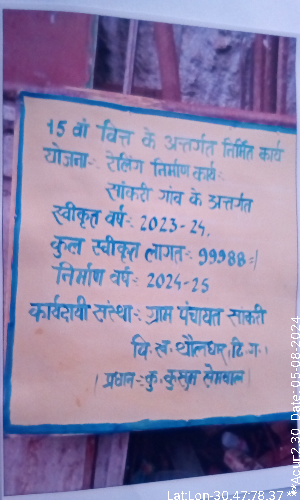 15 वां वित्त के अन्तर्गत निर्मित कार्य
योजना:- रेलिंग निर्माण कार्य
सांकरी गांव के अन्तर्गत
स्वीकृत वर्ष:- 2023-24,
कुल स्वीकृत लागत:- 99988=/
निर्माण वर्ष:- 2024-25
कार्यदायी संस्था:- ग्राम पंचायत सांकरी
वि.खं. थौलधार (टि.ग.)
(प्रधान:- कु. कुसुम सेमवाल)
Lat:Lon-30.47:78.37
**Acur2.30 Date:05-08-2024